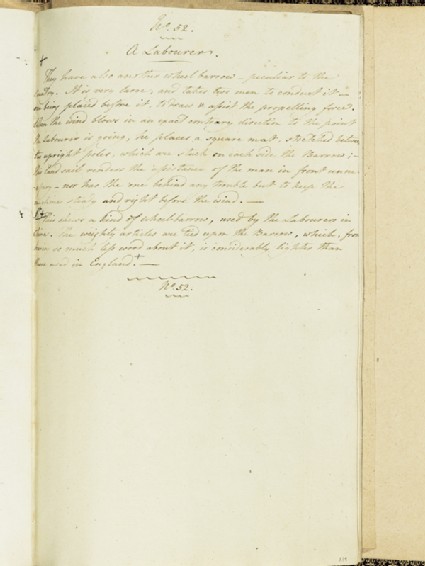 No. 52.
A Labourer.
They have also another wheel barrow peculiar to the
It is very large, and takes two men to conduct it
being placed before it, to draw & assist the propelling force.
When the wind blows in an exact contrary direction to the point
the Labourer is going, he places a square mat, stretched between
two upright poles, which are stuck on each side the Barrow:
sail renders the assistance of the man in front
nor has the one behind any trouble but to keep the
machine steady and right before the wind. —
This shews a kind of wheel barrow, used by the Labourers in
The weighty articles are tied upon the Barrow, which, from
so much less wood about it, is considerably lighter than
those used in England. + —
No. 52.